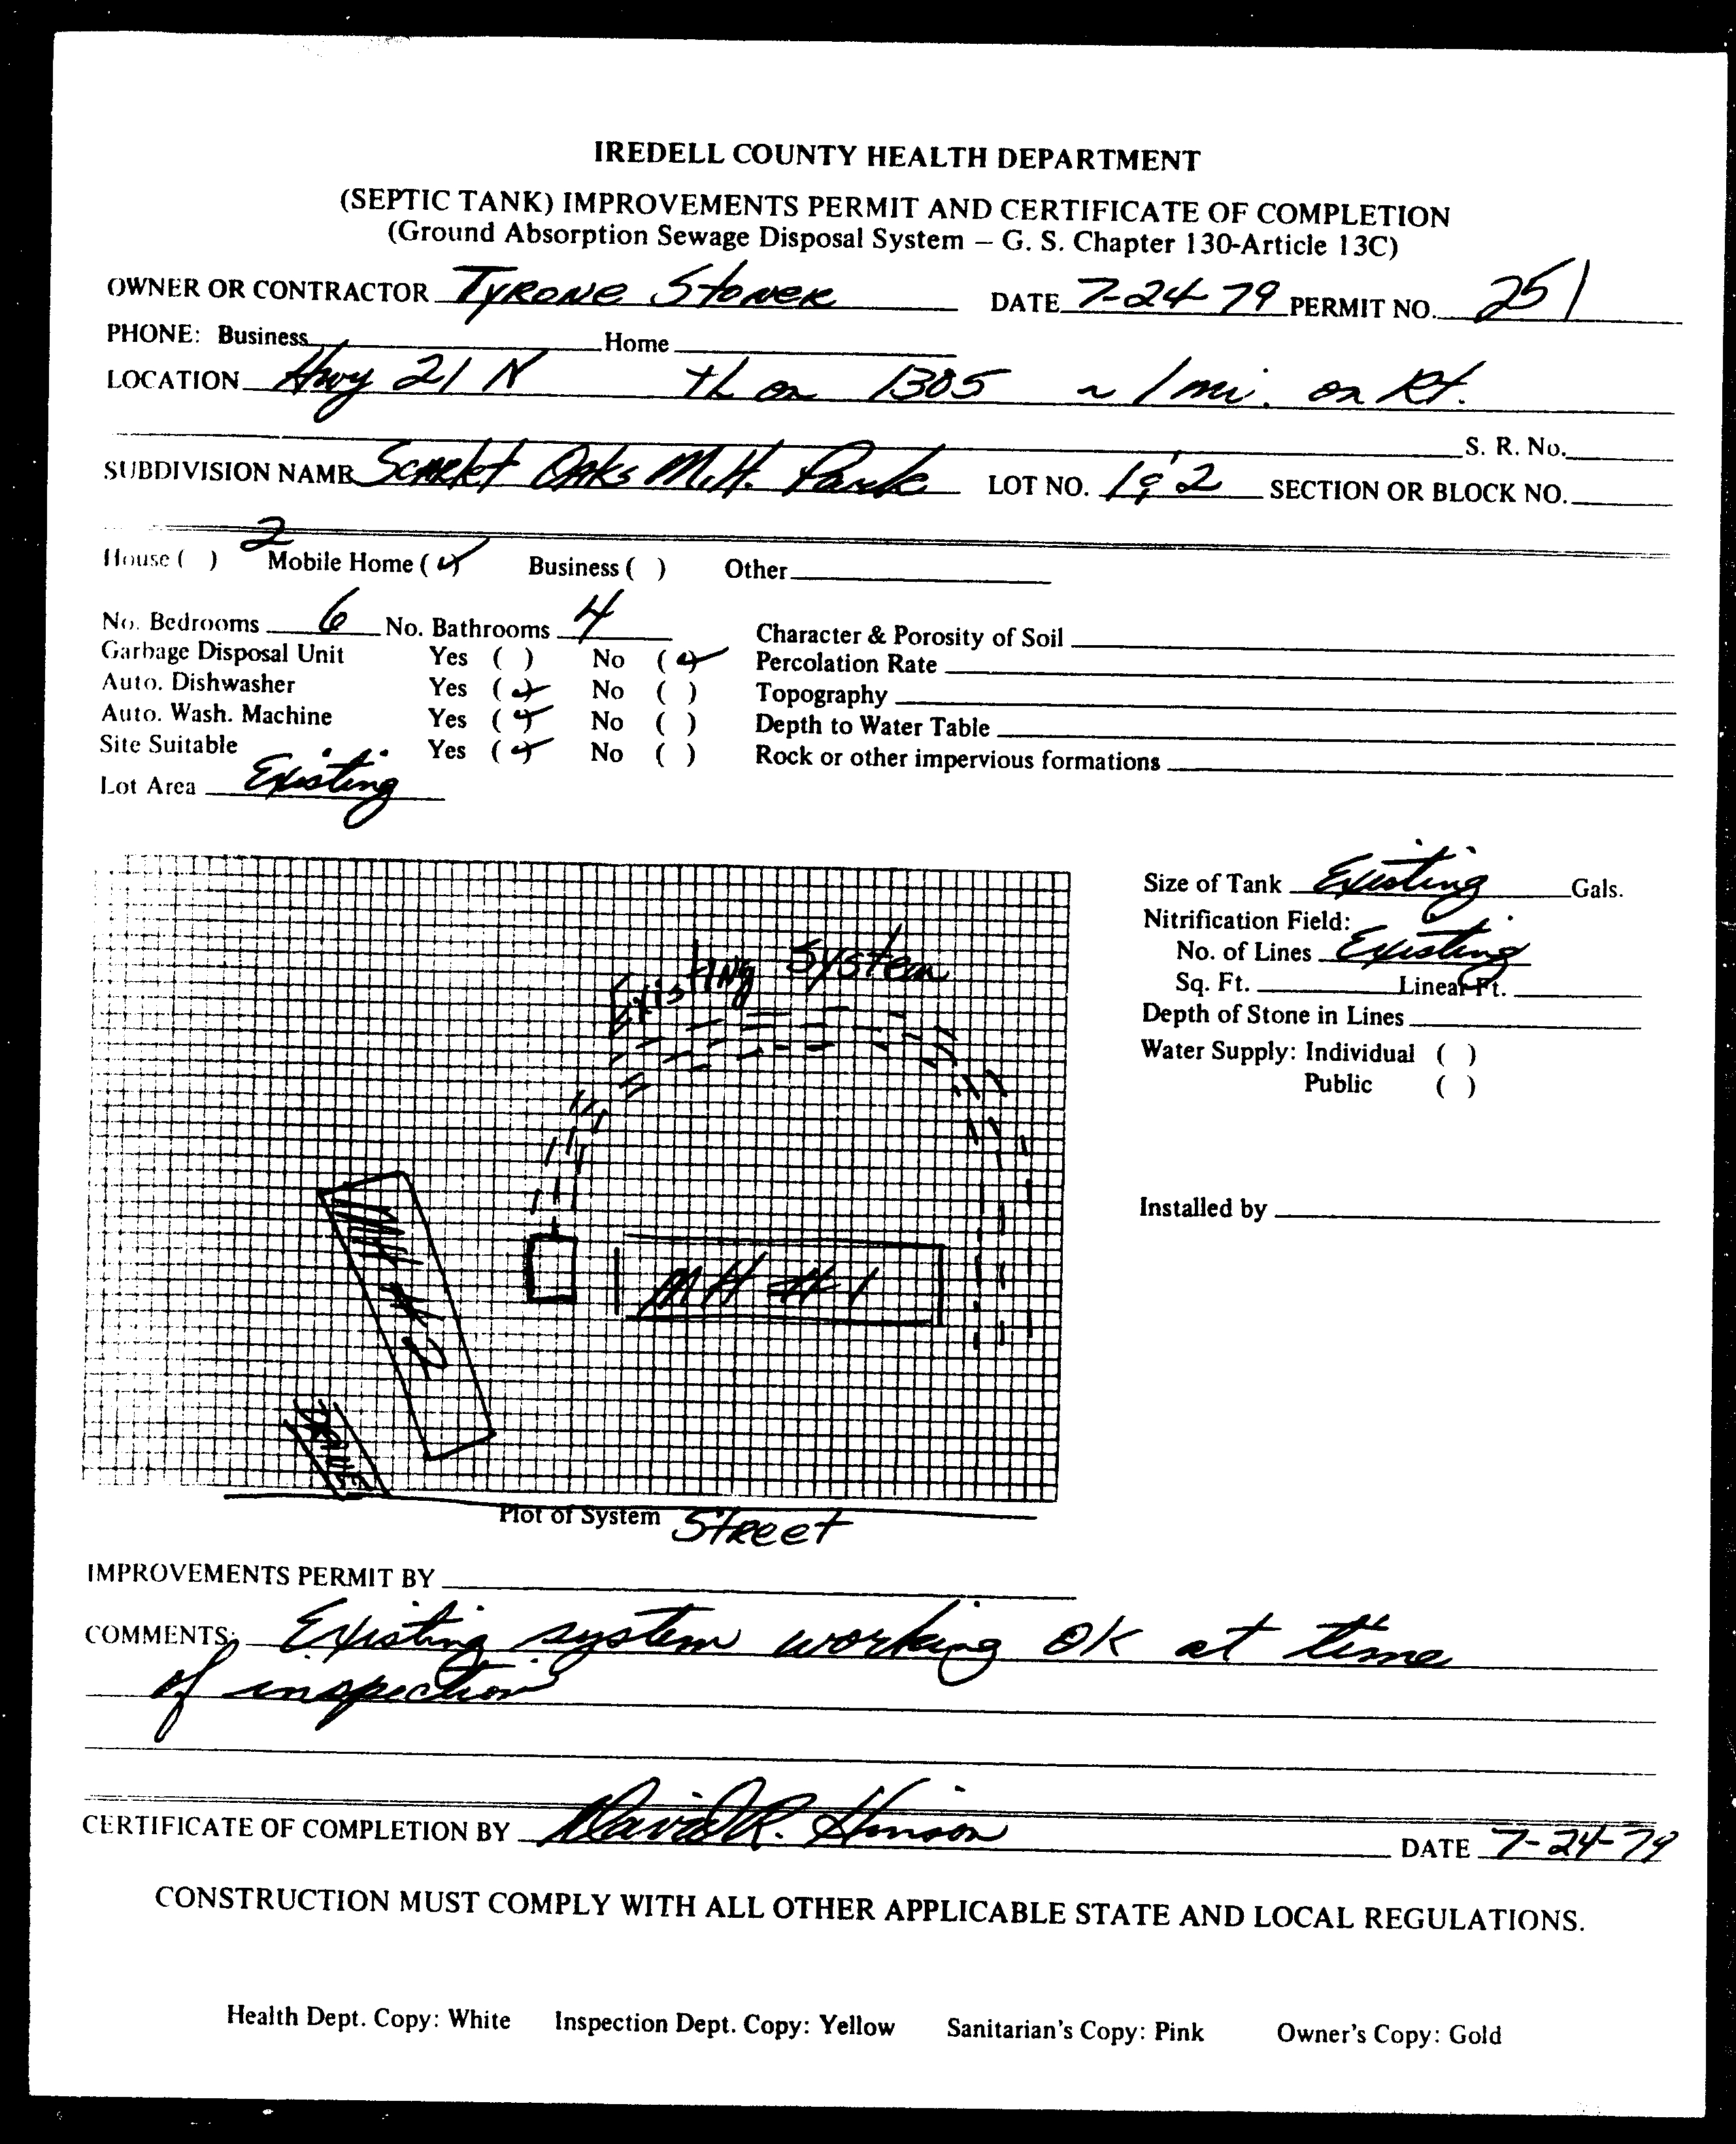 IREDELL COUNTY HEALTH DEPARTMENT
(SEPTIC TANK) IMPROVEMENTS PERMIT AND CERTIFICATE OF COMPLETION
(Ground Absorption Sewage Disposal System – G. S. Chapter 130-Article 13C)
OWNER OR CONTRACTOR Tyrone Stoner DATE 7-24-79 PERMIT NO. 251
PHONE: Business Home
LOCATION Hwy 21 N TL on 1305 ~ 1 mi. on Rt.
S. R. No.
SUBDIVISION NAME Scarlet Oaks M.H. Park LOT NO. 1 & 2 SECTION OR BLOCK NO.
House ( ) 2 Mobile Home (✓) Business ( ) Other
No. Bedrooms 6 No. Bathrooms 4 Character & Porosity of Soil
Garbage Disposal Unit Yes ( ) No (✓) Percolation Rate
Auto. Dishwasher Yes (✓) No ( ) Topography
Auto. Wash. Machine Yes (✓) No ( ) Depth to Water Table
Site Suitable Yes (✓) No ( ) Rock or other impervious formations
Lot Area Existing
Size of Tank Existing Gals.
Nitrification Field:
No. of Lines Existing
Sq. Ft. Linear Ft.
Depth of Stone in Lines
Water Supply: Individual ( )
Public ( )
Installed by
Existing System
MH # 1
MH # 2
DRIVE
Plot of System Street
IMPROVEMENTS PERMIT BY
COMMENTS: Existing system working OK at time
of inspection
CERTIFICATE OF COMPLETION BY David R. Hinson DATE 7-24-79
CONSTRUCTION MUST COMPLY WITH ALL OTHER APPLICABLE STATE AND LOCAL REGULATIONS.
Health Dept. Copy: White Inspection Dept. Copy: Yellow Sanitarian's Copy: Pink Owner's Copy: Gold